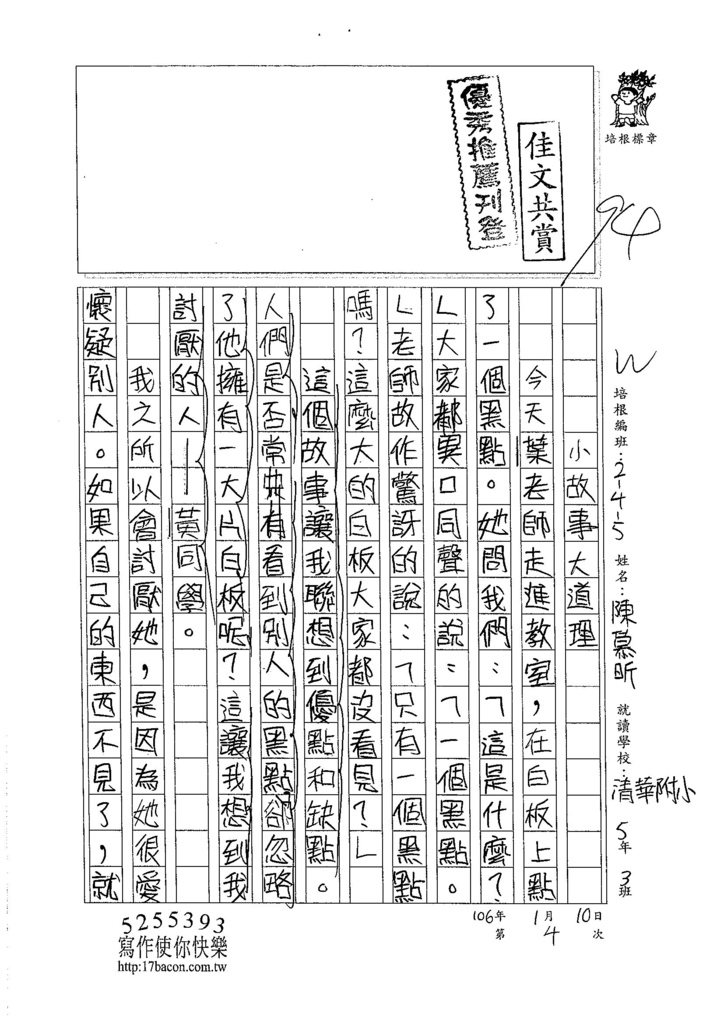 培根標章
優秀推薦刊登
佳文共賞
94
W
培根編班：2-4-5 姓名：陳慕昕 就讀學校：清華附小 5年 3班
小故事大道理
今天葉老師走進教室，在白板上點
了一個黑點。她問我們：「這是什麼？
」大家都異口同聲的說：「一個黑點。
」老師故作驚訝的說：「只有一個黑點
嗎？這麼大的白板大家都沒看見？」
這個故事讓我聯想到優點和缺點。
人們是否常常看到別人的黑點卻忽略
了他擁有一大片白板呢？這讓我想到我
討厭的人——黃同學。
我之所以會討厭她，是因為她很愛
懷疑別人。如果自己的東西不見了，就
106年 1月 10日
第 4 次
5255393
寫作使你快樂
http:17bacon.com.tw